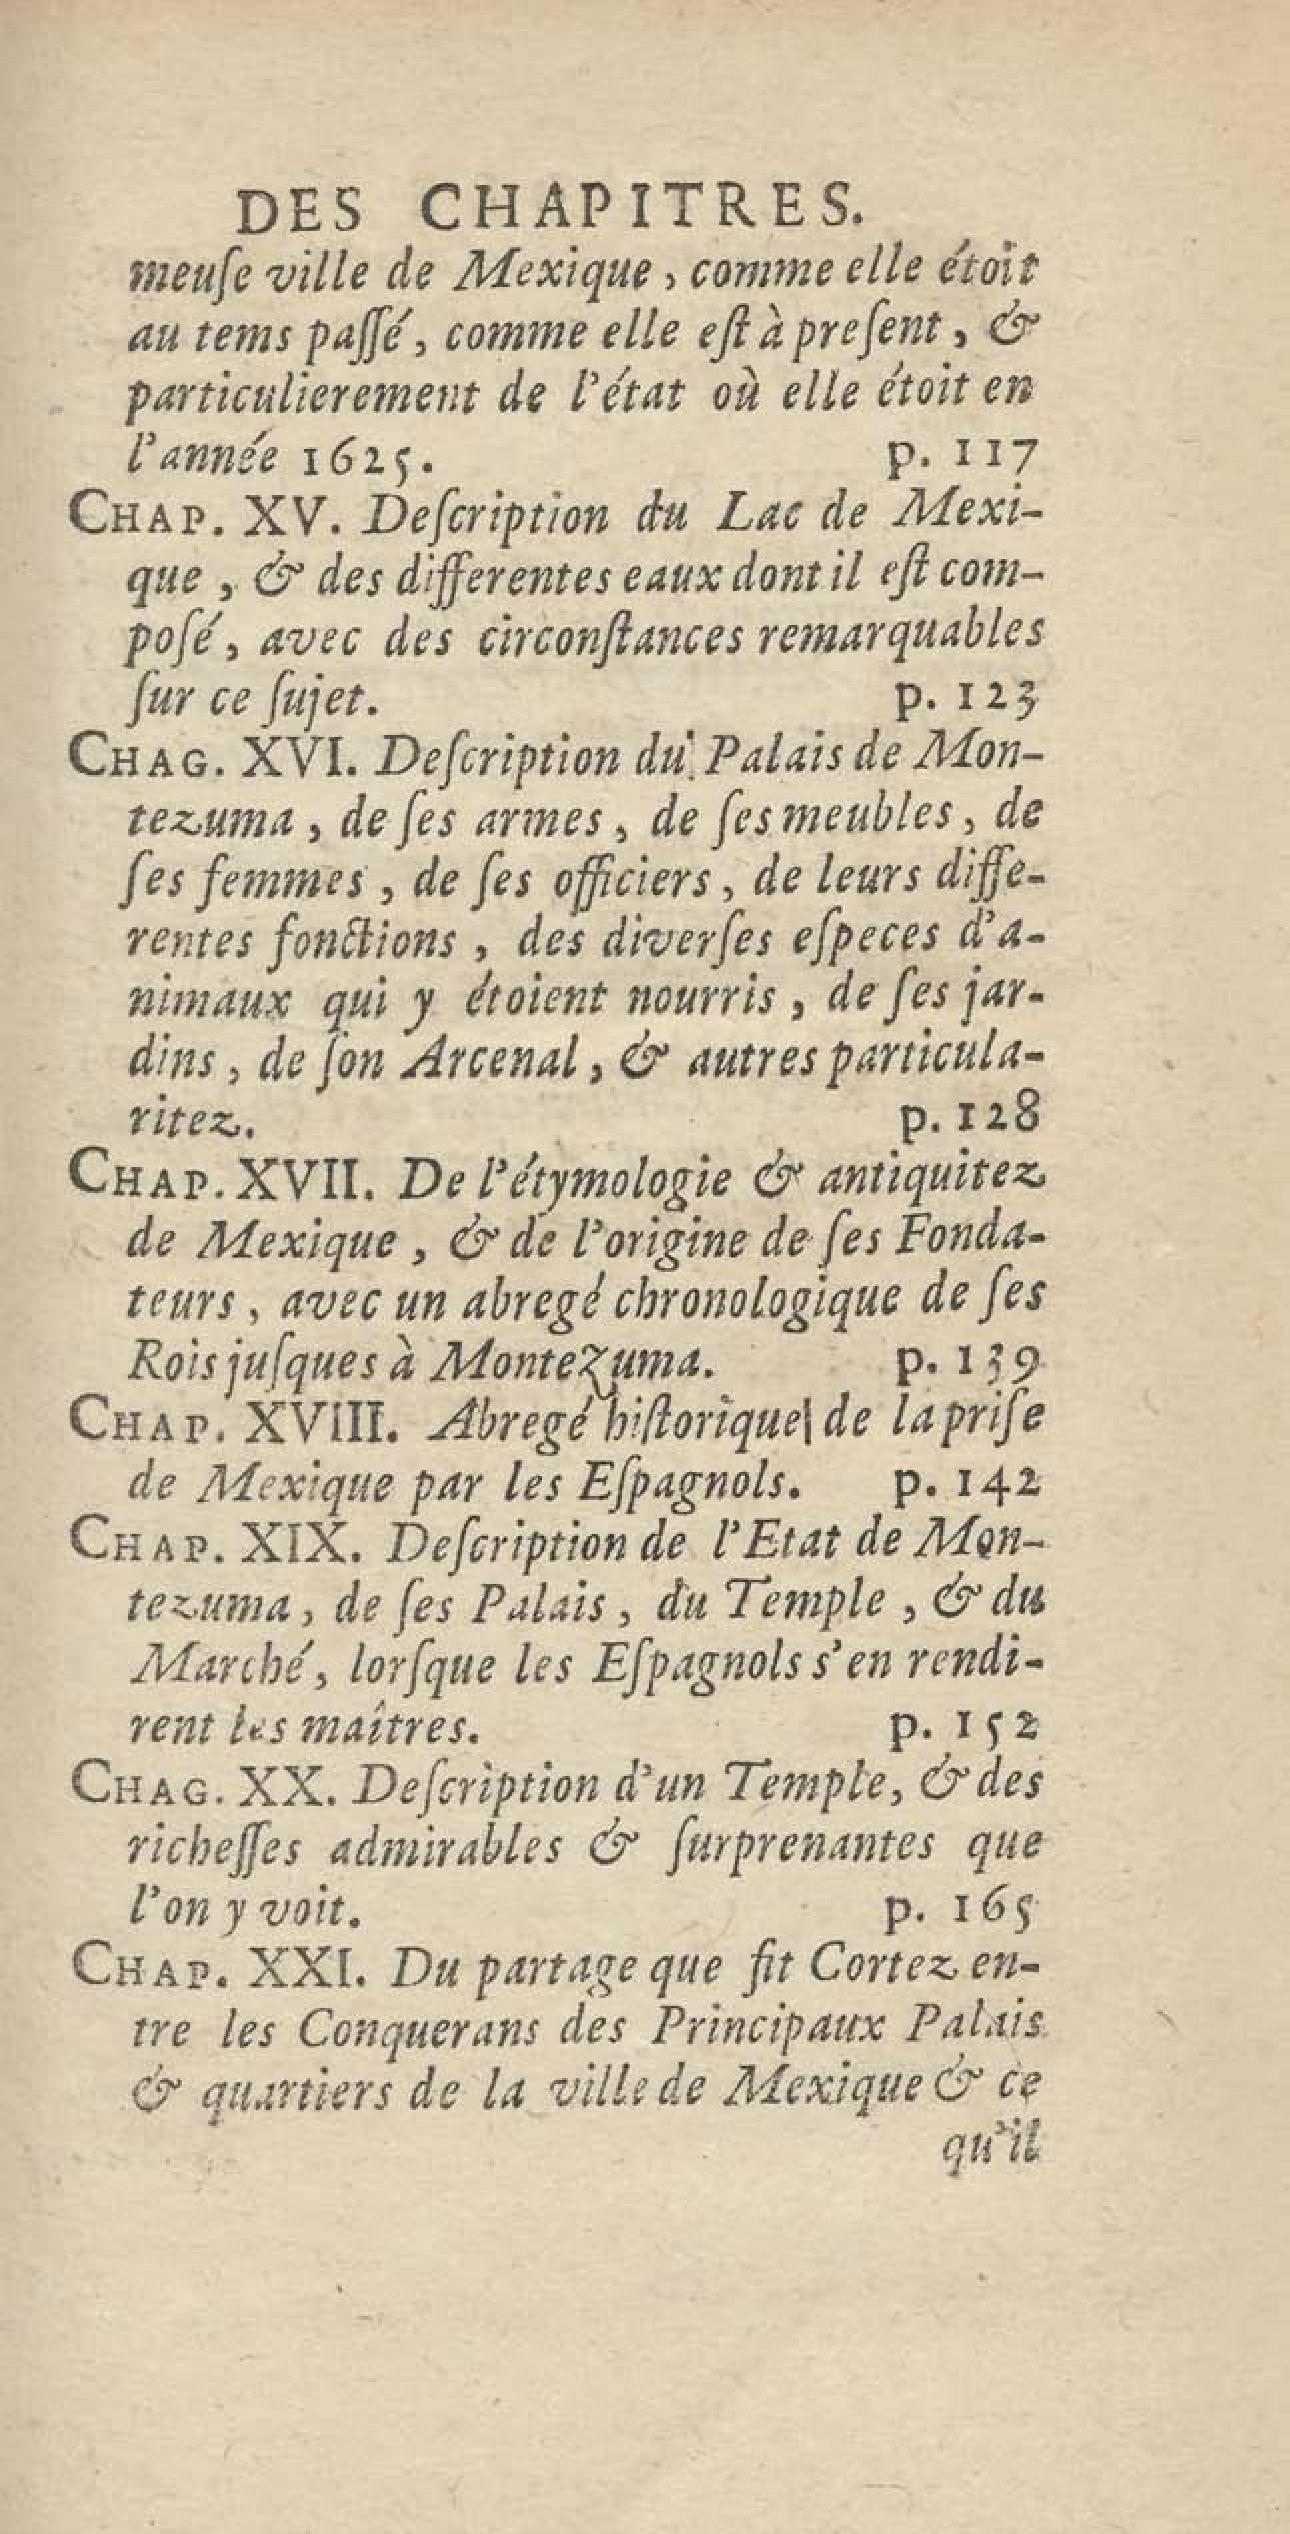 DES CHAPITRES.
meuſe ville de Mexique, comme elle étoit
au tems paſſé, comme elle eſt à preſent, &
particulierement de l'état où elle étoit en
l'année 1625. p. 117
CHAP. XV. Deſcription du Lac de Mexi-
que, & des differentes eaux dont il eſt com-
poſé, avec des circonſtances remarquables
ſur ce ſujet. p. 123
CHAG. XVI. Deſcription du Palais de Mon-
tezuma, de ſes armes, de ſes meubles, de
ſes femmes, de ſes officiers, de leurs diffe-
rentes fonctions, des diverſes eſpeces d'a-
nimaux qui y étoient nourris, de ſes jar-
dins, de ſon Arcenal, & autres particula-
ritez. p. 128
CHAP. XVII. De l'étymologie & antiquitez
de Mexique, & de l'origine de ſes Fonda-
teurs, avec un abregé chronologique de ſes
Rois juſques à Montezuma. p. 139
CHAP. XVIII. Abregé hiſtorique de la priſe
de Mexique par les Eſpagnols. p. 142
CHAP. XIX. Deſcription de l'Etat de Mon-
tezuma, de ſes Palais, du Temple, & du
Marché, lorſque les Eſpagnols s'en rendi-
rent les maîtres. p. 152
CHAG. XX. Deſcription d'un Temple, & des
richeſſes admirables & ſurprenantes que
l'on y voit. p. 165
CHAP. XXI. Du partage que fit Cortez en-
tre les Conquerans des Principaux Palais
& quartiers de la ville de Mexique & ce
qu'il